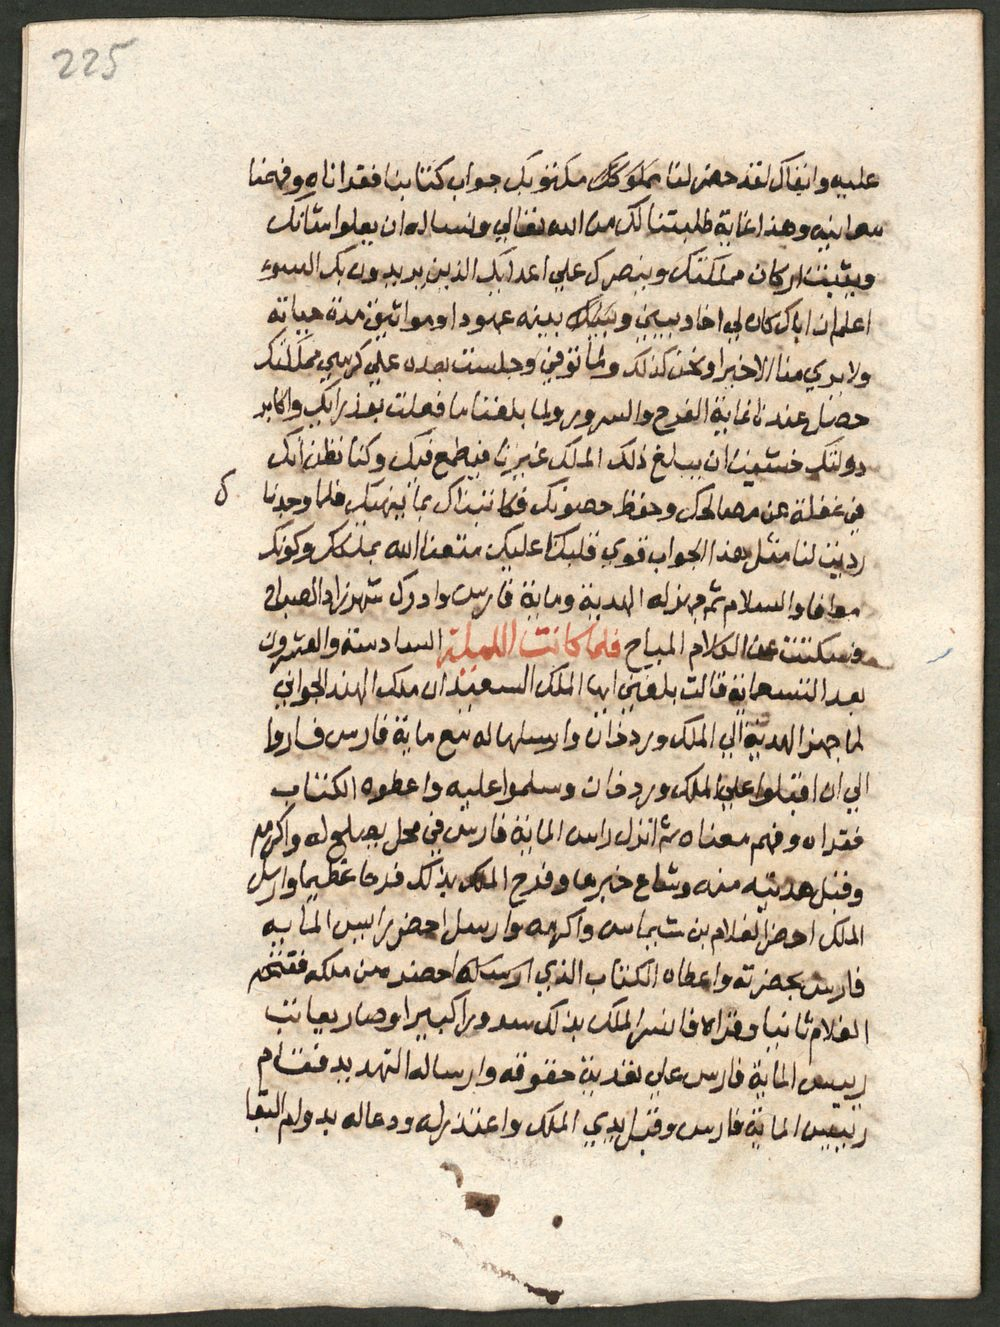 225
عليه وابقاك لقد حضر لنا مملوكك مكتوبك جواب كتابنا فقراناه وفهمنا
معانيه وهذا غاية طلبتنا لك من الله تعالي ونساله ان يعلوا شانك
ويثبت اركان مملكتك وينصرك علي اعدايك الذين يريدون بك السوء
اعلم ان اباك كان لي اخا وبيني وبينه عهودا ومواثيق مدة حياته
ولا يري منا الا خيرا ونحن كذلك ولما توفي وجلست بعده علي كرسي مملكتك
حصل عندنا غاية الفرح والسرور ولما بلغنا ما فعلت بوزرايك واكابر
دولتك خشينا ان يبلغ ذلك الملك غيرنا فيطمع فيك وكنا نظن انك
في غفلة عن مصالحك وحفظ حصونك فكاتبناك بما ينبهك فلما وجدنا
رديت لنا مثل هذا الجواب قوي قلبنا عليك متعنا الله بملكك وكونك
معافا والسلام ثم جهز له الهدية وماية فارس وادرك شهرزاد الصباح
فسكتت عن الكلام المباح فلما كانت الليلة السادسة والعشرون
بعد التسعماية قالت بلغني ايها الملك السعيد ان ملك الهند الجواني
لما جهز الهدية الي الملك ورد خان وارسلها له مع ماية فارس فساروا
الي ان اقبلوا علي الملك ورد خان وسلموا عليه واعطوه الكتاب
فقراه وفهم معناه ثم انزل راس الماية فارس في محل يصلح له واكرمه
وقبل هديته منه وشاع خبرها وفرح الملك بذلك فرحا عظيما وارسل
الملك احضر الغلام بن شيماس واكرمه وارسل احضر راييس الماية
فارس بحضرته واعطاه الكتاب الذي ارسله احضره من ملكه ففتحه
الغلام ثانيا وقراه فانسر الملك بذلك سرورا كبيرا وصار يعاتب
رييس الماية فارس علي تعدية حقوقه وارساله التهديد فقام
رييس الماية فارس وقبل يدي الملك واعتذر له ودعا له بدوام البقا